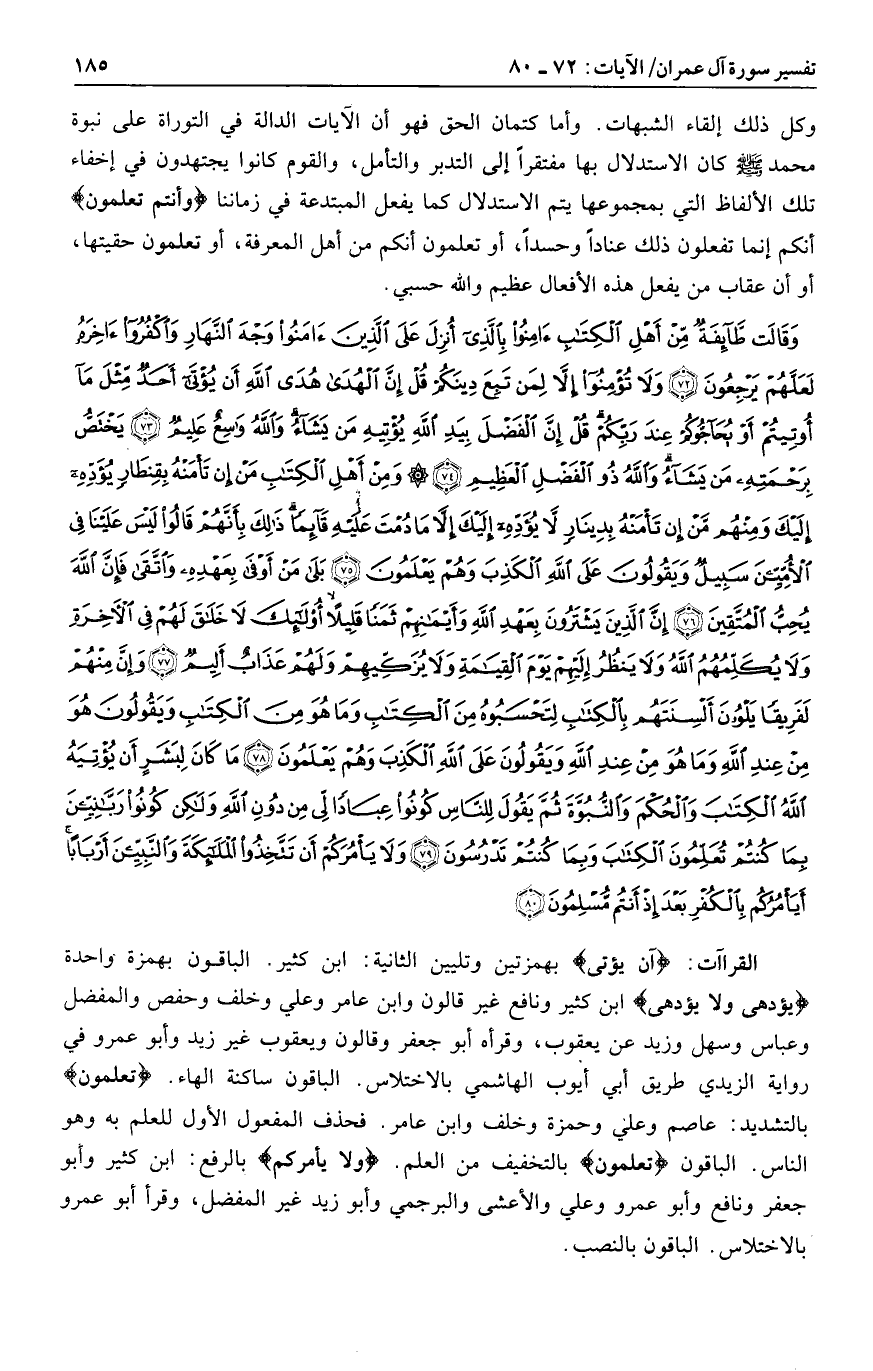 تفسير سورة آل عمران/ الآيات: ٧٢ ـ ٨٠ ١٨٥
وكل ذلك إلقاء الشبهات. وأما كتمان الحق فهو أن الآيات الدالة في التوراة على نبوة
محمد ﷺ كان الاستدلال بها مفتقراً إلى التدبر والتأمل، والقوم كانوا يجتهدون في إخفاء
تلك الألفاظ التي بمجموعها يتم الاستدلال كما يفعل المبتدعة في زماننا ﴿وأنتم تعلمون﴾
أنكم إنما تفعلون ذلك عناداً وحسداً، أو تعلمون أنكم من أهل المعرفة، أو تعلمون حقيتها،
أو أن عقاب من يفعل هذه الأفعال عظيم والله حسبي.
وَقَالَت طَّآئِفَةٌ مِّنْ أَهْلِ ٱلْكِتَٰبِ ءَامِنُوا۟ بِٱلَّذِىٓ أُنزِلَ عَلَى ٱلَّذِينَ ءَامَنُوا۟ وَجْهَ ٱلنَّهَارِ وَٱكْفُرُوٓا۟ ءَاخِرَهُ
لَعَلَّهُمْ يَرْجِعُونَ ٧٢ وَلَا تُؤْمِنُوٓا۟ إِلَّا لِمَن تَبِعَ دِينَكُمْ قُلْ إِنَّ ٱلْهُدَىٰ هُدَى ٱللَّهِ أَن يُؤْتَىٰٓ أَحَدٌ مِّثْلَ مَآ
أُوتِيتُمْ أَوْ يُحَآجُّوكُمْ عِندَ رَبِّكُمْ ۗ قُلْ إِنَّ ٱلْفَضْلَ بِيَدِ ٱللَّهِ يُؤْتِيهِ مَن يَشَآءُ ۗ وَٱللَّهُ وَٰسِعٌ عَلِيمٌ ٧٣ يَخْتَصُّ
بِرَحْمَتِهِۦ مَن يَشَآءُ ۗ وَٱللَّهُ ذُو ٱلْفَضْلِ ٱلْعَظِيمِ ٧٤ ۞ وَمِنْ أَهْلِ ٱلْكِتَٰبِ مَنْ إِن تَأْمَنْهُ بِقِنطَارٍ يُؤَدِّهِۦٓ
إِلَيْكَ وَمِنْهُم مَّنْ إِن تَأْمَنْهُ بِدِينَارٍ لَّا يُؤَدِّهِۦٓ إِلَيْكَ إِلَّا مَا دُمْتَ عَلَيْهِ قَآئِمًا ۗ ذَٰلِكَ بِأَنَّهُمْ قَالُوا۟ لَيْسَ عَلَيْنَا فِى
ٱلْأُمِّيِّۦنَ سَبِيلٌ وَيَقُولُونَ عَلَى ٱللَّهِ ٱلْكَذِبَ وَهُمْ يَعْلَمُونَ ٧٥ بَلَىٰ مَنْ أَوْفَىٰ بِعَهْدِهِۦ وَٱتَّقَىٰ فَإِنَّ ٱللَّهَ
يُحِبُّ ٱلْمُتَّقِينَ ٧٦ إِنَّ ٱلَّذِينَ يَشْتَرُونَ بِعَهْدِ ٱللَّهِ وَأَيْمَٰنِهِمْ ثَمَنًا قَلِيلًا أُو۟لَٰٓئِكَ لَا خَلَٰقَ لَهُمْ فِى ٱلْءَاخِرَةِ
وَلَا يُكَلِّمُهُمُ ٱللَّهُ وَلَا يَنظُرُ إِلَيْهِمْ يَوْمَ ٱلْقِيَٰمَةِ وَلَا يُزَكِّيهِمْ وَلَهُمْ عَذَابٌ أَلِيمٌ ٧٧ وَإِنَّ مِنْهُمْ
لَفَرِيقًا يَلْوُۥنَ أَلْسِنَتَهُم بِٱلْكِتَٰبِ لِتَحْسَبُوهُ مِنَ ٱلْكِتَٰبِ وَمَا هُوَ مِنَ ٱلْكِتَٰبِ وَيَقُولُونَ هُوَ
مِنْ عِندِ ٱللَّهِ وَمَا هُوَ مِنْ عِندِ ٱللَّهِ وَيَقُولُونَ عَلَى ٱللَّهِ ٱلْكَذِبَ وَهُمْ يَعْلَمُونَ ٧٨ مَا كَانَ لِبَشَرٍ أَن يُؤْتِيَهُ
ٱللَّهُ ٱلْكِتَٰبَ وَٱلْحُكْمَ وَٱلنُّبُوَّةَ ثُمَّ يَقُولَ لِلنَّاسِ كُونُوا۟ عِبَادًا لِّى مِن دُونِ ٱللَّهِ وَلَٰكِن كُونُوا۟ رَبَّٰنِيِّۦنَ
بِمَا كُنتُمْ تُعَلِّمُونَ ٱلْكِتَٰبَ وَبِمَا كُنتُمْ تَدْرُسُونَ ٧٩ وَلَا يَأْمُرَكُمْ أَن تَتَّخِذُوا۟ ٱلْمَلَٰٓئِكَةَ وَٱلنَّبِيِّۦنَ أَرْبَابًا ۗ
أَيَأْمُرُكُم بِٱلْكُفْرِ بَعْدَ إِذْ أَنتُم مُّسْلِمُونَ ٨٠
القراآت: ﴿آن يؤتى﴾ بهمزتين وتليين الثانية: ابن كثير. الباقون بهمزة واحدة
﴿يؤدهى ولا يؤدهى﴾ ابن كثير ونافع غير قالون وابن عامر وعلي وخلف وحفص والمفضل
وعباس وسهل وزيد عن يعقوب، وقرأه أبو جعفر وقالون ويعقوب غير زيد وأبو عمرو في
رواية الزيدي طريق أبي أيوب الهاشمي بالاختلاس. الباقون ساكنة الهاء. ﴿تعلمون﴾
بالتشديد: عاصم وعلي وحمزة وخلف وابن عامر. فحذف المفعول الأول للعلم به وهو
الناس. الباقون ﴿تعلمون﴾ بالتخفيف من العلم. ﴿ولا يأمركم﴾ بالرفع: ابن كثير وأبو
جعفر ونافع وأبو عمرو وعلي والأعشى والبرجمي وأبو زيد غير المفضل، وقرأ أبو عمرو
بالاختلاس. الباقون بالنصب.